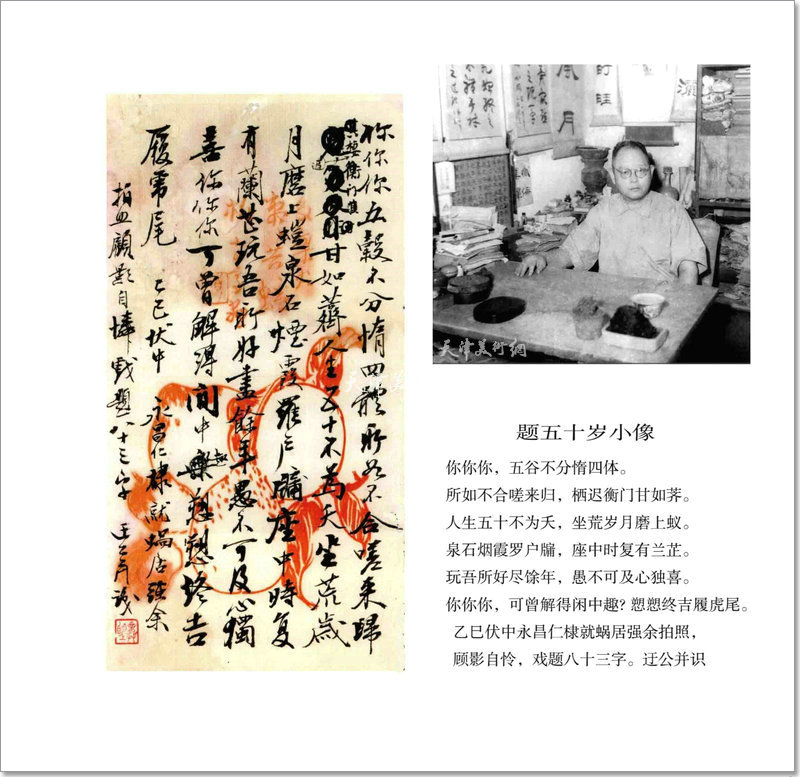 你你你五穀不分惰四體所如不合嗟来歸
甘如薺人生五十不為夭坐荒歲
月磨上螘泉石煙霞羅户牖座中時復
有蘭芷玩吾所好盡餘年愚不可及心獨
喜你你你可曾解得閒中趣愬愬終吉
履虎尾 乙巳伏中 永昌仁棣就蝸居強余
拍照顧影自憐戲題八十三字 迂公并識
風月
天津美術網
题五十岁小像
你你你，五谷不分惰四体。
所如不合嗟来归，栖迟衡门甘如荠。
人生五十不为夭，坐荒岁月磨上蚁。
泉石烟霞罗户牖，座中时复有兰芷。
玩吾所好尽馀年，愚不可及心独喜。
你你你，可曾解得闲中趣？愬愬终吉履虎尾。
乙巳伏中永昌仁棣就蜗居强余拍照，
顾影自怜，戏题八十三字。迂公并识